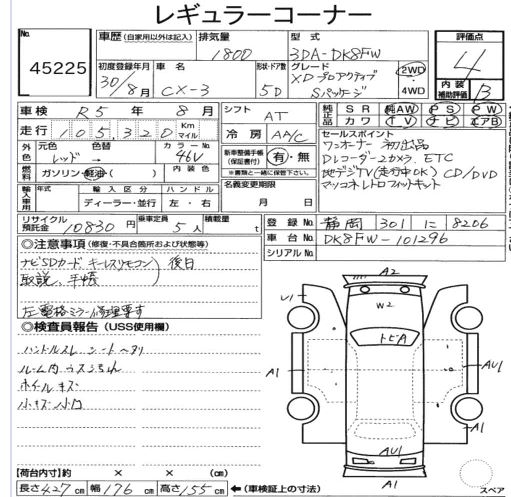 レギュラーコーナー
No. 45225
車歴 (自家用以外は記入) 排気量 1800 型式 3DA-DK8FW
初度登録年月 30/8月 車名 CX-3 形状・ドア数 5D グレード XDプロアクティブ Sパッケージ 2WD ・ 4WD
評価点 4
内装補助評価 B
車検 R5年 8月 シフト AT
純正品 SR 純AW PS PW
カワ TV ナビ エアB
走行 105,320 Km マイル 冷房 AA/C
外色 元色 レッド → 色替 カラーNo. 46V
燃料 ガソリン・軽油( ) 内装色
新車整備手帳(保証書付) 有・無
※書類と一緒に保管して下さい。
輸入車用 年式 輸入区分 ディーラー・並行 ハンドル 左・右
名義変更期限 月 日
セールスポイント
ワンオーナー 初出品
Dレコーダー2カメラ、ETC
地デジTV(走行中OK) CD/DVD
マツコネレトロフィットキット
リサイクル預託金 10830円 乗車定員 5人 積載量 t
登録No. 静岡 301 に 8206
車台No. DK8FW-101296
シリアルNo.
◎注意事項 (修復・不具合箇所および状態等)
ナビSDカード、キーレスリモコン 後日
取説、手帳
左電格ミラー修理要す
◎検査員報告 (USS使用欄)
ハンドルスレ シートヘタリ
ルーム内ウスジミ
ホイールキズ
小キズ 小凹
A2
U1
W2
トビA
A1
AU1
A1
AU1
A1
スペア
【荷台内寸】約 × × (cm)
長さ 427 cm 幅 176 cm 高さ 155 cm ←(車検証上の寸法)